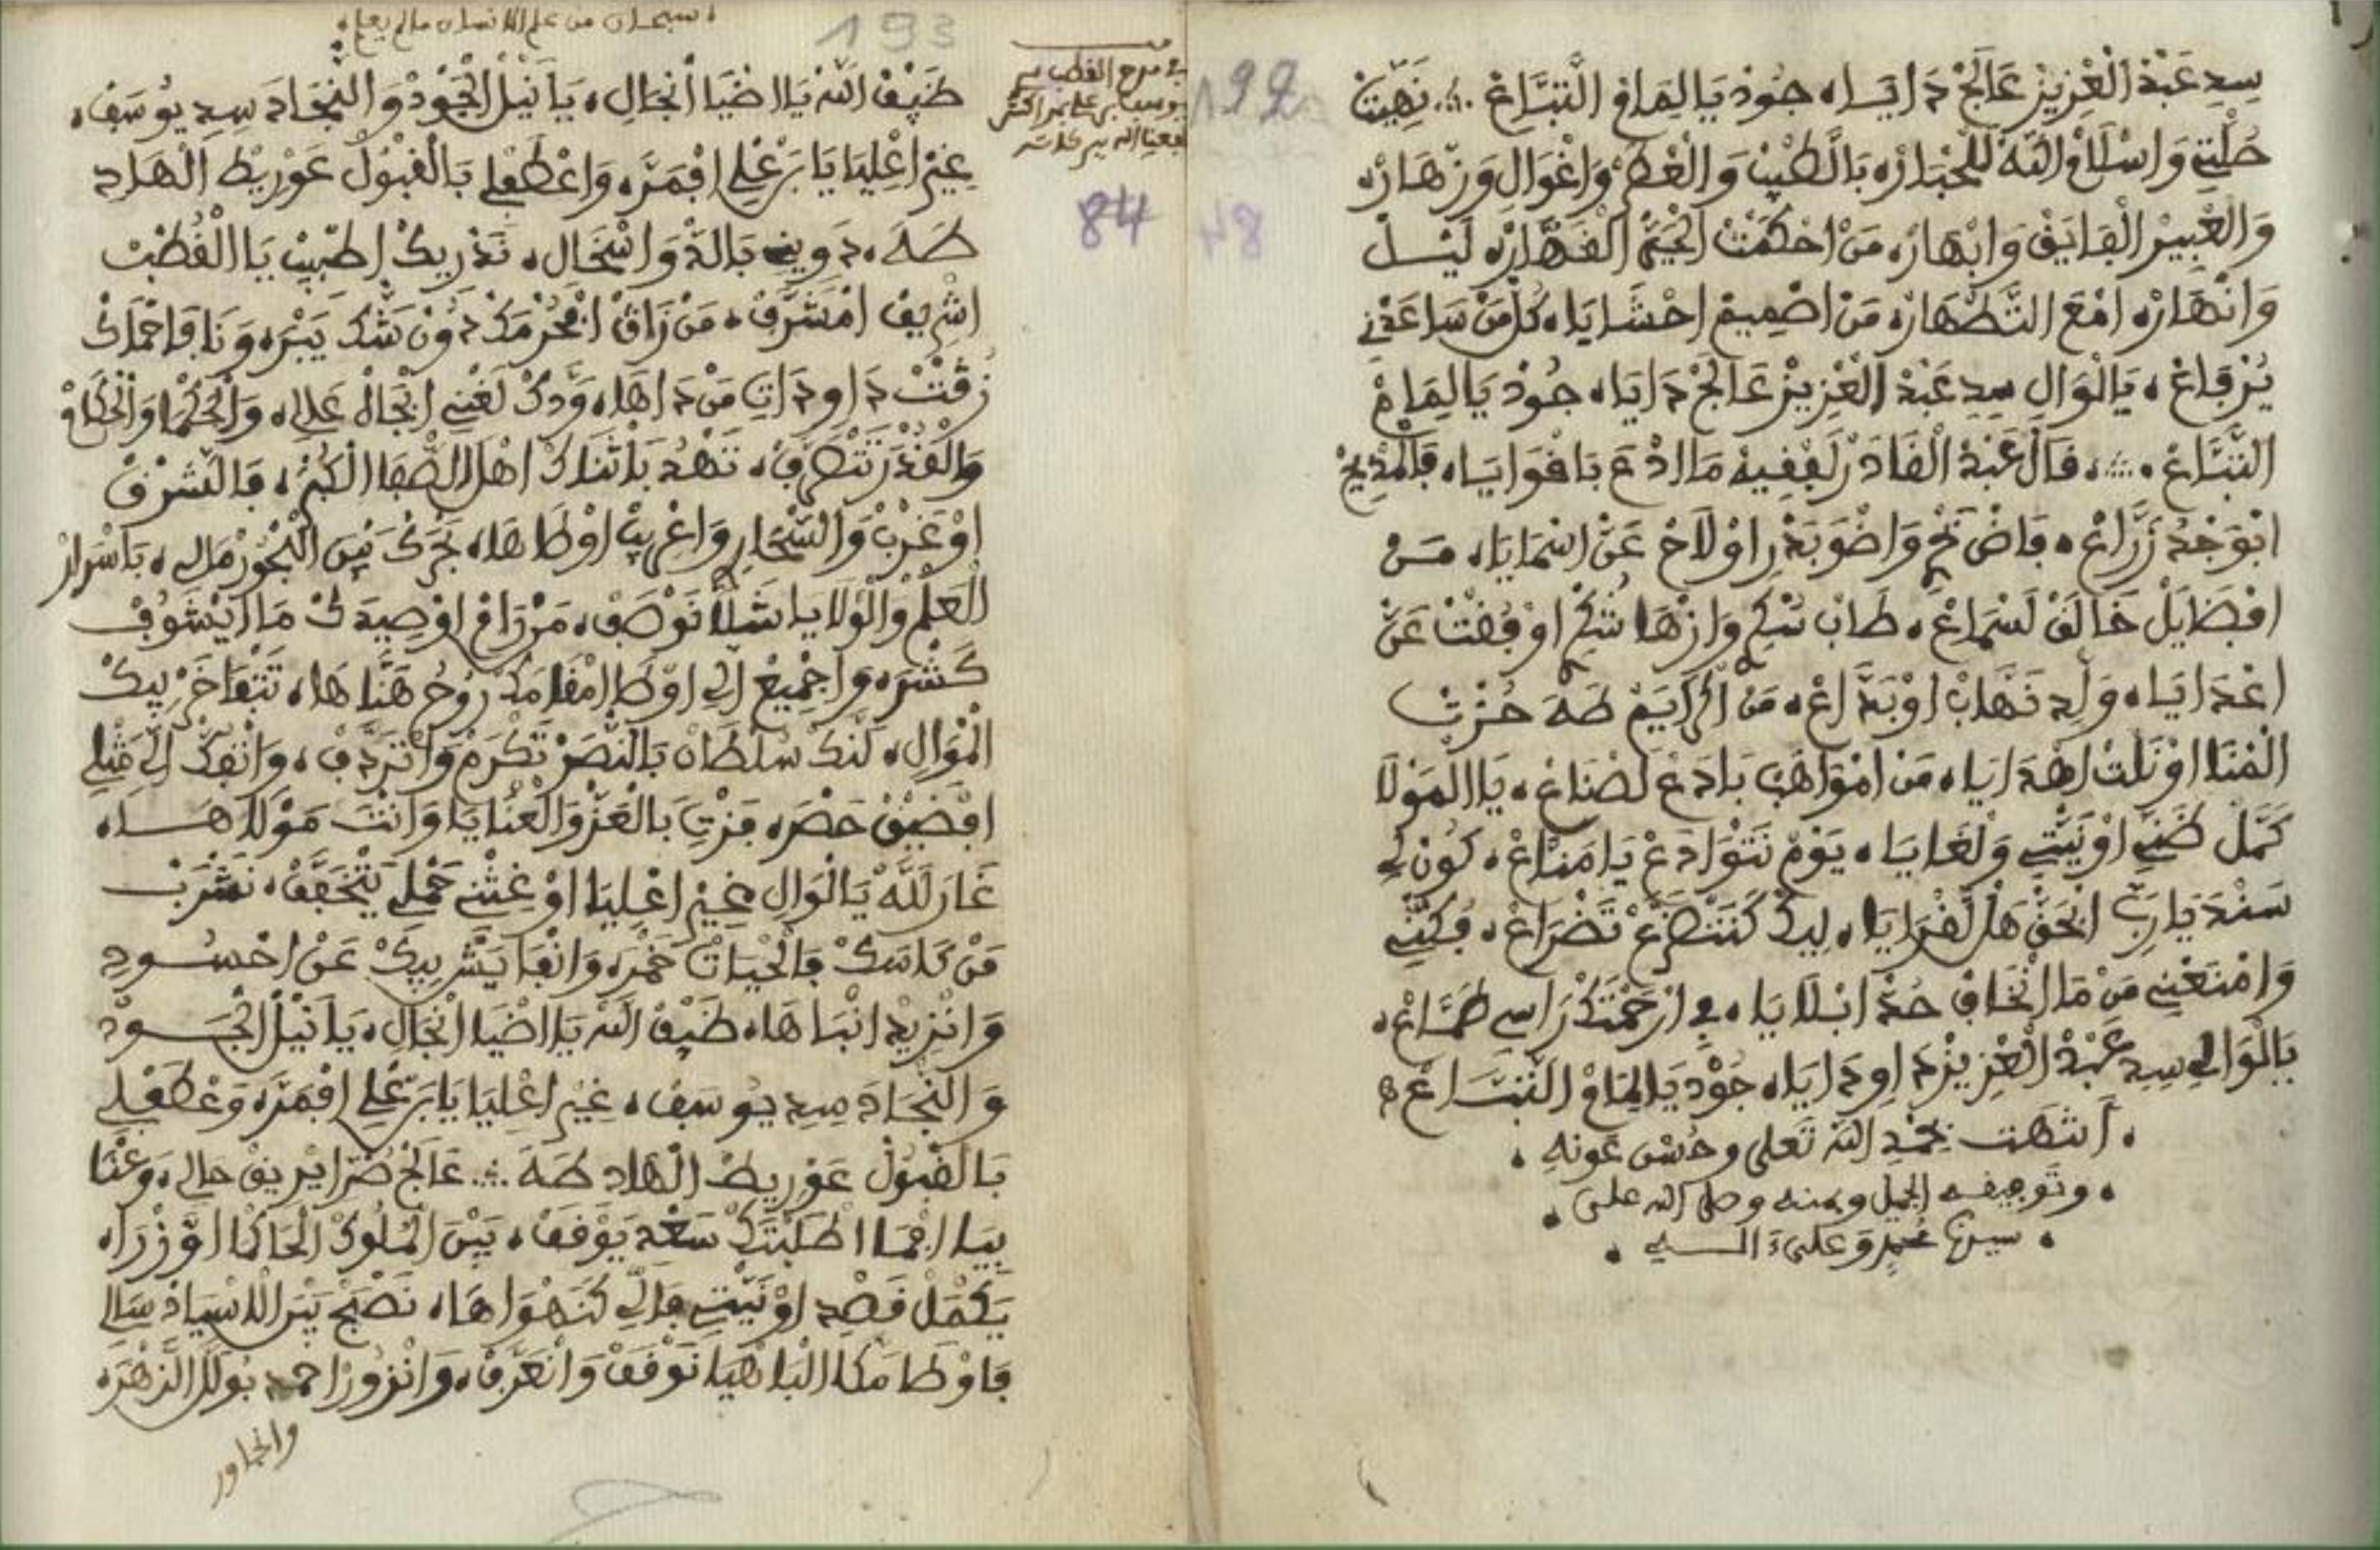 سِدِ عَبْدْ الْعْزِيزْ عَالَجْ دَايَا، جُودْ يَا الِمَامْ التَّبَّاعْ ؞ نَهِيتْ
حُلْتِي وَاسْلَامْ اللهْ لَلْحْبَارْ، بَالطِّيبْ وَالْعْطَرْ وَاغْوَالِ وَزْهَارْ،
وَالْعْبِيرْ الْفَايَقْ وَابْهَارْ، مَنْ احْكَمْتْ الْحَيّْ الْقَهَّارْ، لَيْـلْ
وَانْهَارْ، امْعَ التَّطْهَارْ، مَنْ اصْمِيمْ احْشَايَا، كُلّْ مَنْ سَاعَدْنِي
يُرْفَاعْ، يَا الْوَالِ سِدِ عَبْدْ الْعْزِيزْ عَالَجْ دَايَا، جُودْ يَا الِمَامْ
التَّبَّاعْ ؞ قَالْ عَبْدْ الْقَادَرْ لَفْقِيهْ مَا ادْعَ بَاغْوَايَا، فَالْمْدِيحْ
ابْوَجْدُ زَرَّاعْ، فَاضْ وَاضْوَ بَدْرِ اوْلَاحْ عَنْ اسْمَايَا، مَـنْ
افْضَايَلْ خَالَقْ لَسْمَاعْ، طَابْ وَازْهَا اوْفُقْتْ عَنْ
اعْدَايَا، وَلِّ نَهَّابْ اوْبَدَّاعْ، مَنْ طَهَ حُزْتْ
الْمْنَا اوْنَلْتْ اهْدَايَا، مَنْ امْوَاهَبْ بَادَعْ لَصْنَاعْ، يَا الْمَوْلَا
كَمَّلْ ظَنِّي اوْنِيّْتِي وَلْغَايَا، يَوْمْ نَتْوَادَعْ يَا مَنَّاعْ، كُونْ لِي
سَنْدَ يَا رَبِّ ابْحَقّْ هَلْ لَقْرَايَا، لِيكْ كَنَتْضَرَّعْ تَضْرَاعْ، فُكّْنِي
وَامْنَعْنِي مَنْ مَا انْخَافْ حُدْ ابْلَايَا، فِي ارْحَمْتَكْ رَاسِي طَمَّاعْ،
يَا الْوَالِي سِدِ عَبْدْ الْعْزِيزْ دَاوِ دَايَا، جُودْ يَا الِمَامْ التَّبَّـاعْ
. انتهت بحمد الله تعلى وحسن عونه .
. وتوفيقه الجميل ومنه وصلى الله على .
. سيدنا محمد وعلى ءاله .
. سبحان من علم الانسان ما لم يعلم .
في مدح القطب سي
يوسف بن علي بمراكش
نفعنا الله ببركاته
193
192
84
ضَيْفْ اللهْ يَا اضْيَا انْجَالِ، يَا نَيْلْ الْجُودْ وَالنّْجَادَ سِدِ يُوسَفْ،
غِيرْ اعْلِيَّا يَا بَنْ عْلِي افْمَرَّ، وَاعْطَفْلِي بَالْقْبُولْ عَوْرِيطْ الْهَادِ
طَهَ، دَوِينِي بَالدّْوَ انْسَحَالِ، نَدْرِيكْ اطْبِيبْ يَا الْقُطْبْ
اشْرِيفْ امْشَرَّفْ، مَنْ زَاڭْ ابْحُرْمَكْ دُونْ شَكّْ يَبْرَ، وَنَا فَاحْمَاكْ
زُڭْتْ دَاوِ دَاتِ مَنْ دَاهَا، وَدّكْ لَغْنِي ابْجَاهْ عَالِي، وَالْحَكْمَا وَالْحْكَامْ
وَالْقَدْرَ تَتْصَرَّفْ، تَهْدْ بَاثْنَاكْ اهْلْ الصّْفَا الْكُبْرَ، فَالشَّرْقْ
اوْغَرْبْ وَالصّْحَارِ وَاغْرِيبْ اوْطَاهَا، بَحْرَكْ بَيْنْ الْبْحُورْ مَالِي، بَاسْرَارْ
الْعَلْمْ وَالْوْلَايَا شَلَّا نَوْصَفْ، مَنْ زَاڭْ اوْصِيدَكْ مَا ايْشُوفْ
كَشْرَ، وَاجْمِيعْ الِّي اوْطَا امْقَامَكْ رُوحُ هَنَّاهَا، تَتْفَاخَرْ بِيكْ
الْمْوَالِ، لَنَّكْ سُلْطَانْ بَالنّْصَرْ تَكْرَمْ وَاتْرَدَّفْ، وَاتْفَكّْ الِّي مَثْلِي
افْضِيقْ حَصْرَ، فَزْتِ بَالْعَزّْ وَالْعْنَايَا وَانْتَ مَوْلَاهَـا،
غَارَ لَلَّهْ يَا الْوَالِ غِيرْ اعْلِيَّا اوْغِثْنِي حَمْلِي يَتْخَفَّفْ، نَشْرَبْ
مَنْ كَاسَكْ فَالْحْيَاتْ خَمْرَ، وَانْفَايَشْ بِيكْ عَنْ احْسُـودِ
وَانْزِيدْ انْبَاهَا، ضَيْفْ اللهْ يَا اضْيَا انْجَالِ، يَا نَيْلْ الْجُـودْ
وَالنّْجَادَ سِدِ يُوسَفْ، غِيرْ اعْلِيَّا يَا بَنْ عْلِي افْمَرَّ، وَعْطَفْلِي
بَالْقْبُولْ عَوْرِيطْ الْهَادِ طَهَ ؞ عَالَجْ ضُرِّ ايْرِيقْ حَالِي، وَعْثَا
بِيَّا احْمَا اطْلَبْتَكْ سَعْدِ يَوْفَقْ، بَيْنْ الْمْلُوكْ الْحَاكْمَا اوْزْرَا،
يَكْمَلْ قَصْدِ اوْنِيّْتِي فَالِّي كَنَهْوَاهَا، نَصْبَحْ بَيْنْ الَاسْيَادْ سَالِي
فَاوْطَا مَكَّا الْبَاهْيَا نَوْقَفْ وَانْعَرَّفْ، وَانْزُورْ احمد بُولَالَّا الزّْهْرَ،
وانجاور